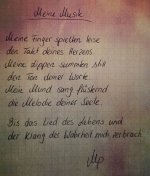 Meine Musik
Meine Finger spielten leise
den Takt deines Herzens.
Meine Lippen summten still
den Ton deiner Worte
Mein Mund sang flüsternd
die Melodie deiner Seele.
Bis das Lied des Lebens und
der Klang der Wahrheit mich zerbrach.